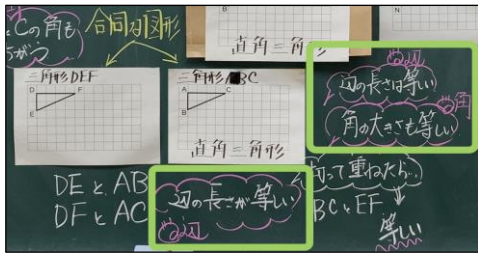 Cの角も
ちがう
合同な図形
三角形DEF
D
F
E
三角形ABC
A
C
B
直角三角形
B
直角三角形
N
辺の長さは等しい
角の大きさも等しい
角
DEとAB
DFとAC
辺の長さが等しい
辺
切って重ねたら…
BCとEF
等しい